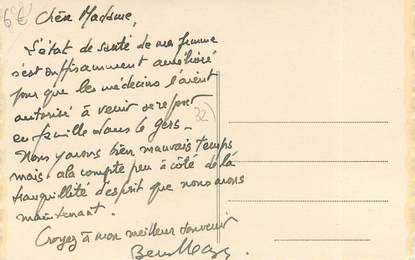 6€ Chère Madame,
L'état de santé de ma femme
s'est suffisamment amélioré
pour que les médecins l'aient
autorisé à venir se repos
en famille dans le Gers -
32)
Nous y avons bien mauvais temps
mais cela compte peu à côté de la
tranquillité d'esprit que nous avons
maintenant.
Croyez à mon meilleur souvenir